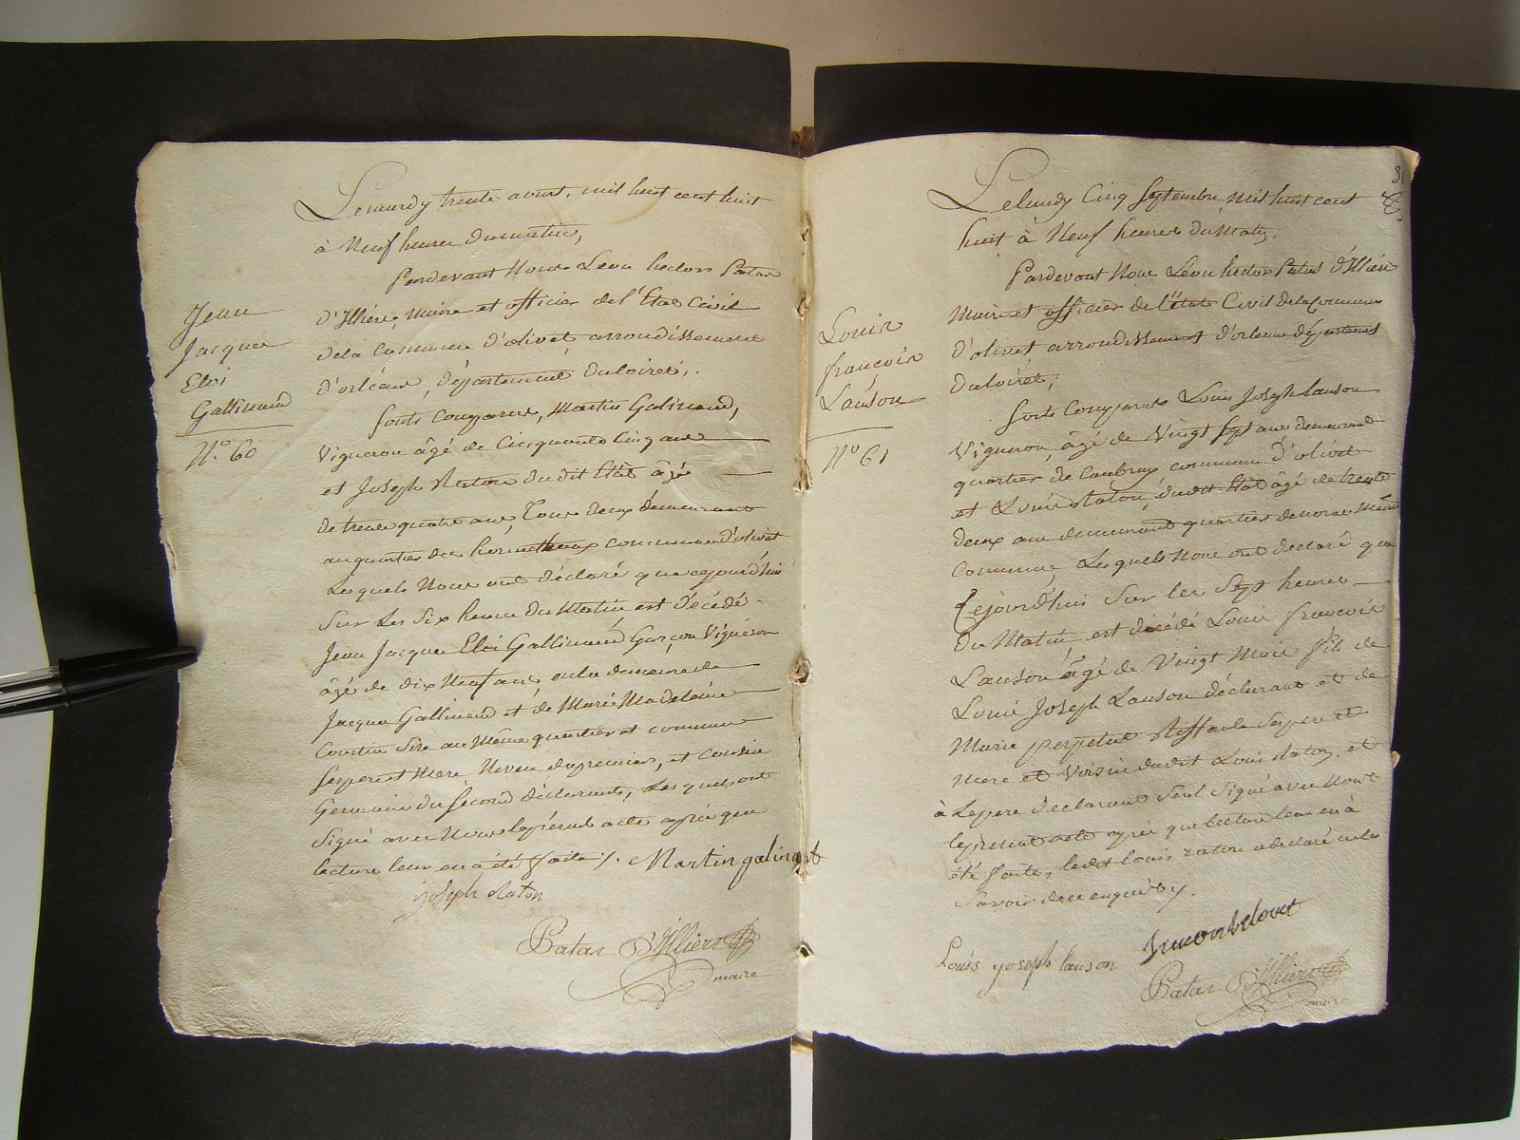 Jean
Jacque
Eloi
Gallineand
N.° 60
Le mardy trente aoust, mil huit cent huit
à Neuf heures du matin,
Pardevant Nous Léon hector Patas
d'Illiers, Maire et officier de l'Etat Civil
dela Commune d'olivet arrondissement
d'orléans, département du loiret,.
sont comparus, Martin Galineand,
Vigneron âgé de Cinquante Cinq ans
et Joseph Raton dudit Etat âgé
de trente quatre ans, Tous deux demeurant
au quartier des commune d'olivet
Lesquels Nous ont déclaré que cejourd'hui
sur Les Six heures du Matin est décédé
Jean Jacque Eloi Gallineand Garçon Vigneron
âgé de dix Neuf ans en la demeure de
Jacque Gallineand et de Marie Madelaine
Cousin Sise au Même quartier et commune
ses pere et Mere Neveu du premier, et Cousin
Germain du Second déclarants, Lesquels ont
Signé avec Nous le présent acte après que
lecture leur en a été faite ./. Martin galinant
joseph Raton
Patas D'Illiers
maire
Louis
françois
Lauson
N° 61
Le lundy Cinq Septembre Mil huit cent
huit à Neuf heures du Matin.
Pardevant Nous Léon hector Patas d'Illiers
Maire et officier de l'état Civil de la Commune
d'olivet arrondissement d'orleans département
du loiret;
sont Comparus Louis Joseph Lauson
Vigneron, âgé de Vingt sept ans demeurant
quartier de commune d'olivet
et Louis Raton, dudit Etat âgé de trente
deux ans demeurant quartier de Même
Commune, Lesquels Nous ont déclaré que
Cejourd'hui Sur les Sept heures
du Matin est décédé Louis françois
Lauson âgé de Vingt Mois fils de
Louis Joseph Lauson déclarant et de
Marie perpetue ses pere et
Mere et Voisin dudit Louis Raton, et
à Le pere declarant Seul Signé avec Nous
le présent acte après que lecture leur en à
été faite, ledit louis raton a declaré ne le
Savoir de ce enquis ./.
Louis joseph lauson
Patas D'Illiers
maire